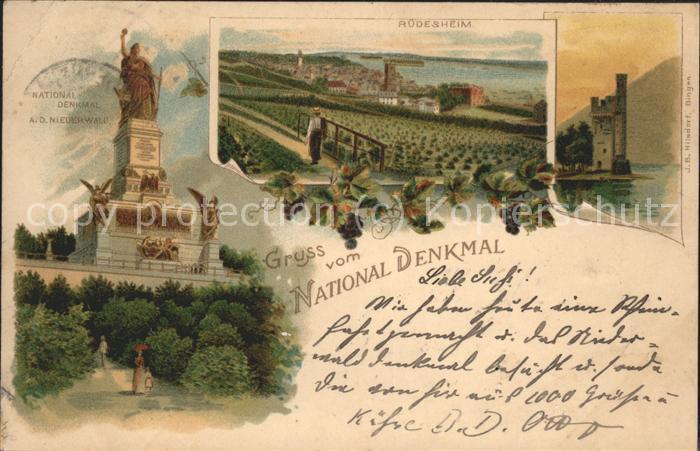 RÜDESHEIM.
NATIONAL-
DENKMAL
A. D. NIEDERWALD.
J. B. Hilsdorf, Bingen.
copy protection © Kopierschutz
Gruss vom
NATIONAL DENKMAL
Liebe Susi!
Wir haben heute eine Rhein-
fahrt gemacht u. das Nieder-
walddenkmal besucht u. sende
Dir von hier aus 1000 Grüße u
Küsse